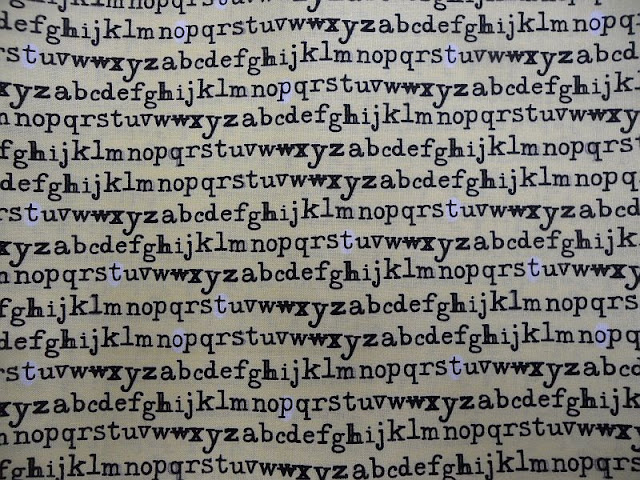 defghijklmnopqrstuvwwxyzabcdefghijklmnopq
rstuvwwxyzabcdefghijklmnopqrstuvwwxyzabcd
xyzabcdefghijklmnopqrstuvwwxyzabcdefghijk
nopqrstuvwwxyzabcdefghijklmnopqrstuvwwxy
fghijklmnopqrstuvwwxyzabcdefghijklmnopqrst
defghijklmnopqrstuvwwxyzabcdefghijklmnopq
rstuvwwxyzabcdefghijklmnopqrstuvwwxyzabcd
xyzabcdefghijklmnopqrstuvwwxyzabcdefghijk
nopqrstuvwwxyzabcdefghijklmnopqrstuvwwxy
fghijklmnopqrstuvwwxyzabcdefghijklmnopqrs
defghijklmnopqrstuvwwxyzabcdefghijklmnopq
rstuvwwxyzabcdefghijklmnopqrstuvwwxyzabcd
xyzabcdefghijklmnopqrstuvwwxyzabcdefghijk
nopqrstuvwwxyzabcdefghijklmnopqrstuvwwxy
fghijklmnopqrstuvwwxyzabcdefghijklmnopqrs